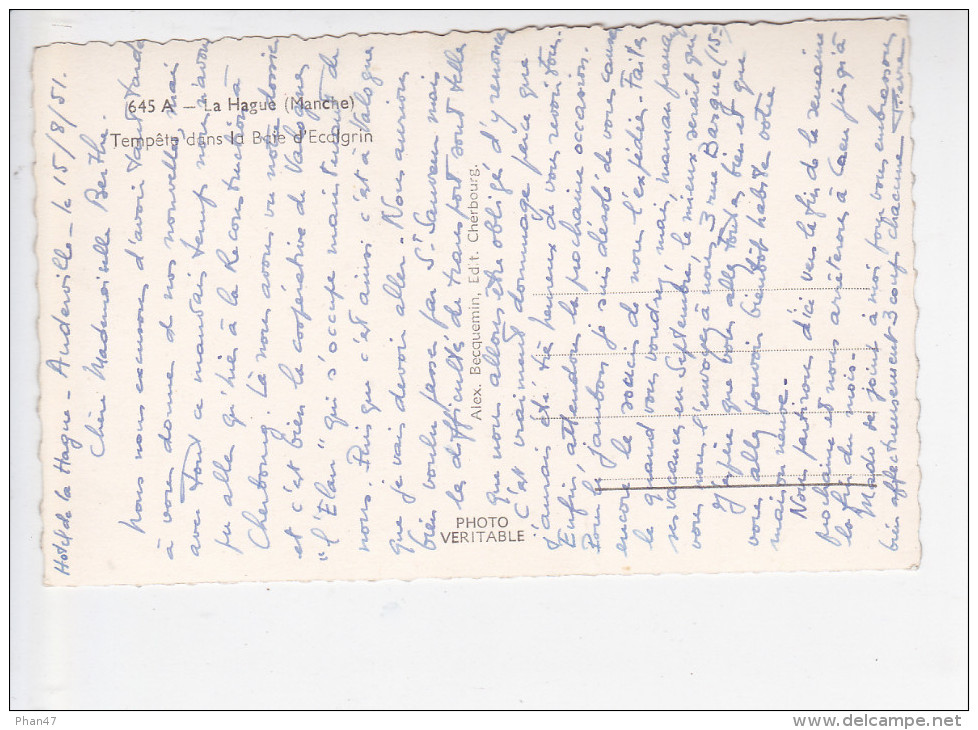 645 A — La Hague (Manche)
Tempête dans la Baie d'Ecalgrin
Alex. Becquemin, Edit. Cherbourg.
PHOTO
VERITABLE
Hotel de la Hague - Auderville - le 15/8/51.
Chère Mademoiselle Berthe.
nous nous excusons d'avoir tant tardé
à vous donner de nos nouvelles mais
avec tout ce mauvais temps nous n'avons
pu aller qu'hier à la Reconstruction à
Cherbourg. Là nous avons vu notre dossier
et c'est bien la coopérative de Valognes
"l'Elan" qui s'occupe maintenant de
nous. Puis que c'est ainsi c'est à Valognes
que je vais devoir aller. Nous aurions
bien voulu passer par St Sauveur mais
les difficultés de transport sont telles
que nous allons être obligés d'y renoncer
C'est vraiment dommage parce que
j'aurais été très heureux de vous revoir tous.
Enfin, attendons la prochaine occasion.
Pour le jambon je suis désolé de vous causer
encore le soucis de nous l'expédier. Faites
le quand vous voudrez, mais, maman prenant
ses vacances en Septembre, le mieux serait que
vous nous l'envoyez à nous, 3 rue Basque (15e)
J'espère que vous allez toutes bien et que
vous allez pouvoir bientôt habiter votre
maison neuve.
Nous partirons d'ici vers la fin de la semaine
prochaine et nous nous arrêterons à Caen jusqu'à
la fin du mois.
Mado se joint à moi pour vous embrasser
bien affectueusement 3 coups chacune
Phan47
www.delcampe.net